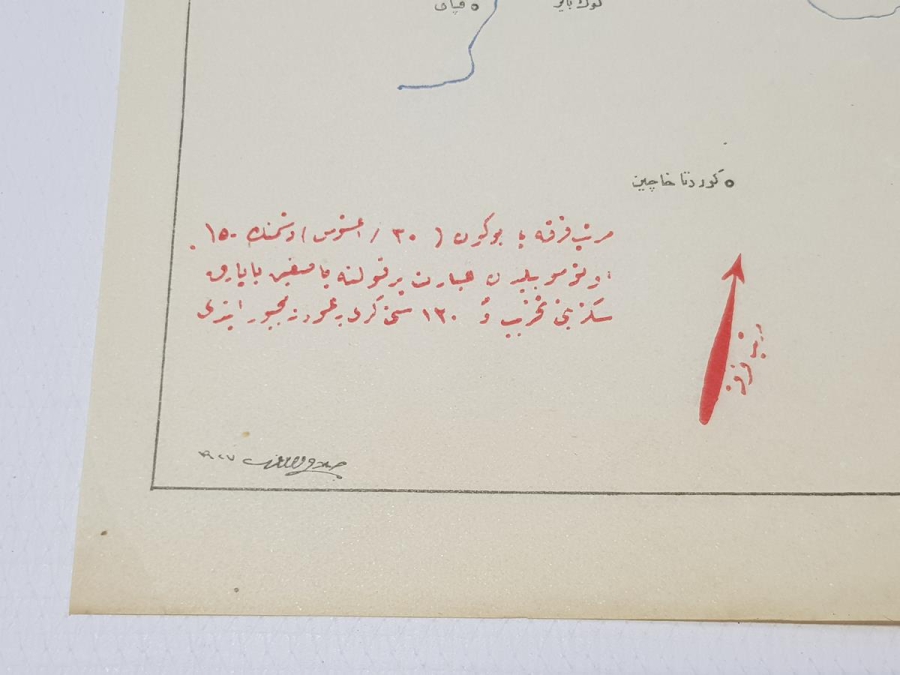 قپای
كوك بایر
كوردتا خاچین
مرتب فرقه یا بوكون ( ٣٠ / اغستوس ) دشمنك ١٥٠
اوتوموبیلدن عبارت بر قولنه یاصقین یاپارق
سكزینی تخریب و ١٢٠ سنی كری عودته مجبور ایتدی
مرتب فرقه